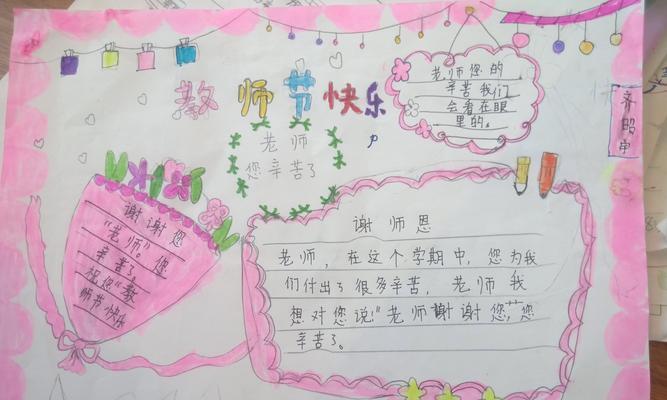 教师节快乐
老师您的
辛苦我们
会看在眼
里的。
老师
您辛苦了
谢谢您
“老师”。您
辛苦了。
祝您“教
师节快乐
谢师恩
老师，在这个学期中，您为我
们付出了很多辛苦，老师我
想对您说：“老师谢谢您，您
辛苦了。